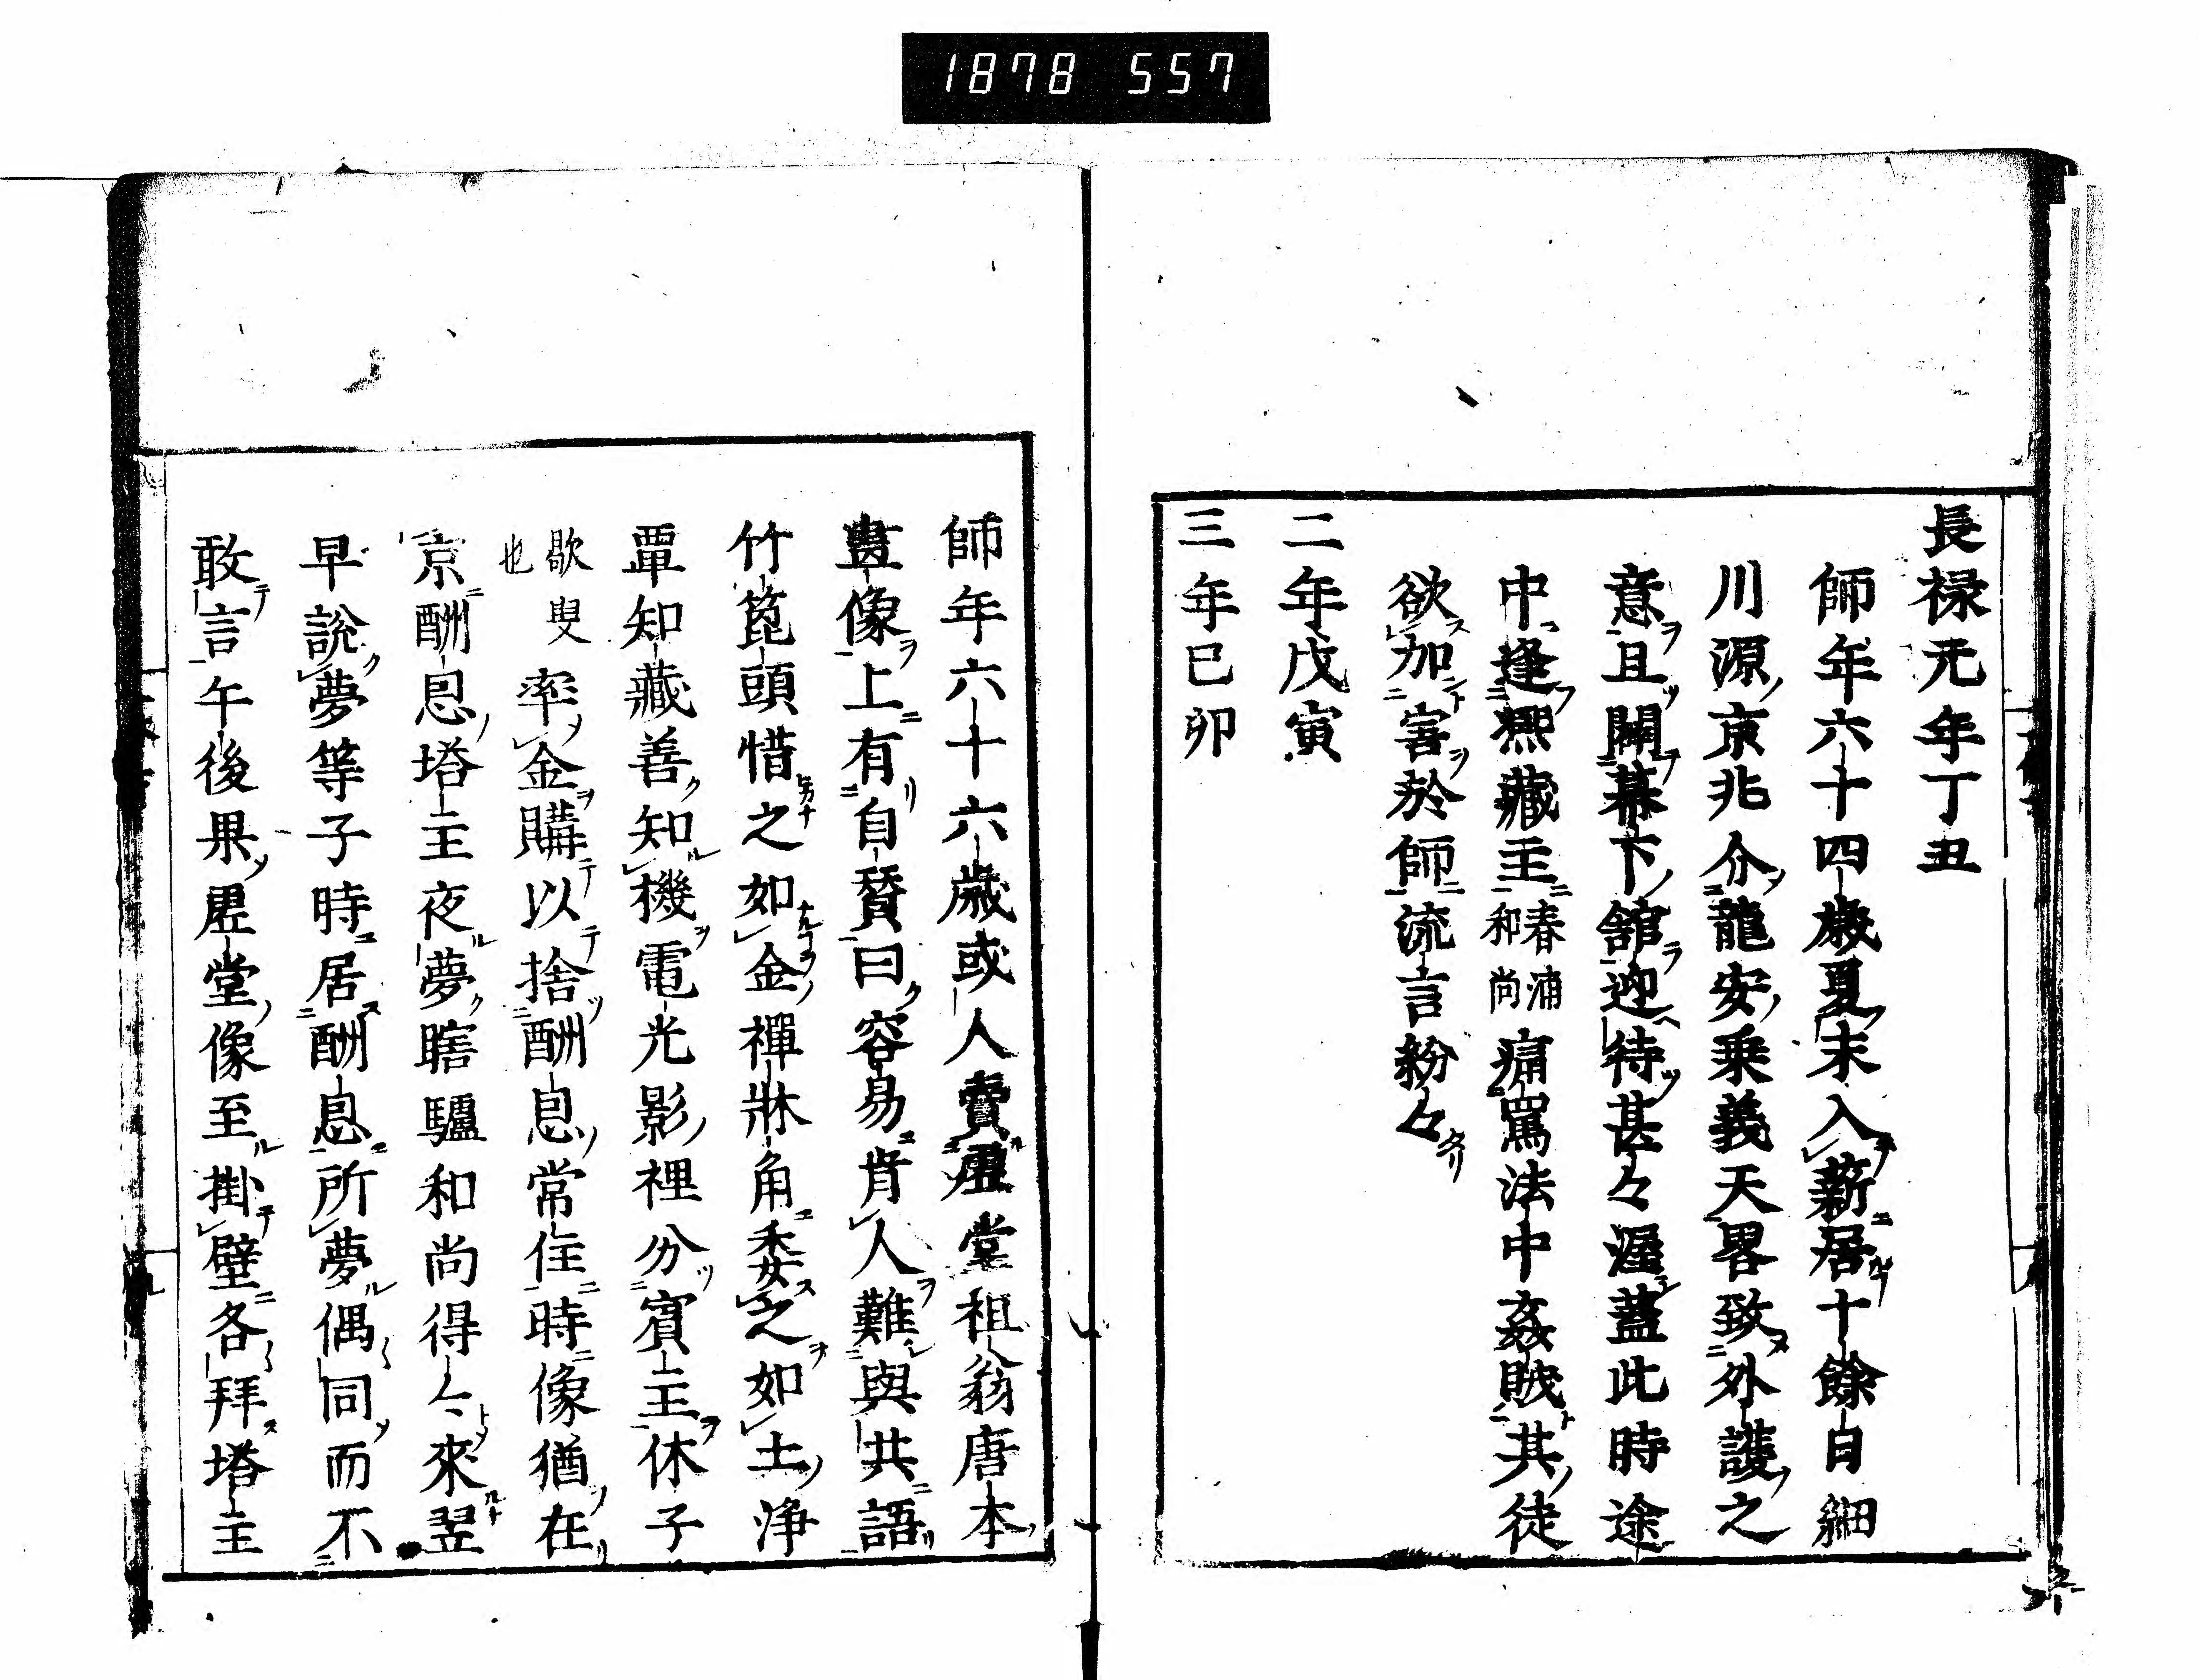 1878 557
長禄元年丁丑
師年六十四歳夏末入薪居十餘日細
川源京兆介龍安乗義天畧致外護之
意且開幕下舘迎待甚々渥蓋此時途
中逢熈藏主春浦和尚痛罵法中姦賊其徒
欲加害於師流言紛々
二年戊寅
三年已卯
師年六十六歳或人賣虚堂祖翁唐本
畫像上有自賛曰容易肯人難與共語
竹篦頭惜之如金禪牀角委之如土浄
覃知藏善知機電光影裡分賓主休子
歇叟也率金購以捨酬恩常住時像猶在
京酬恩塔主夜夢瞎驢和尚得々來翌
早說夢等子時居酬恩所夢偶同而不
敢言午後果虚堂像至掛壁各拜塔主